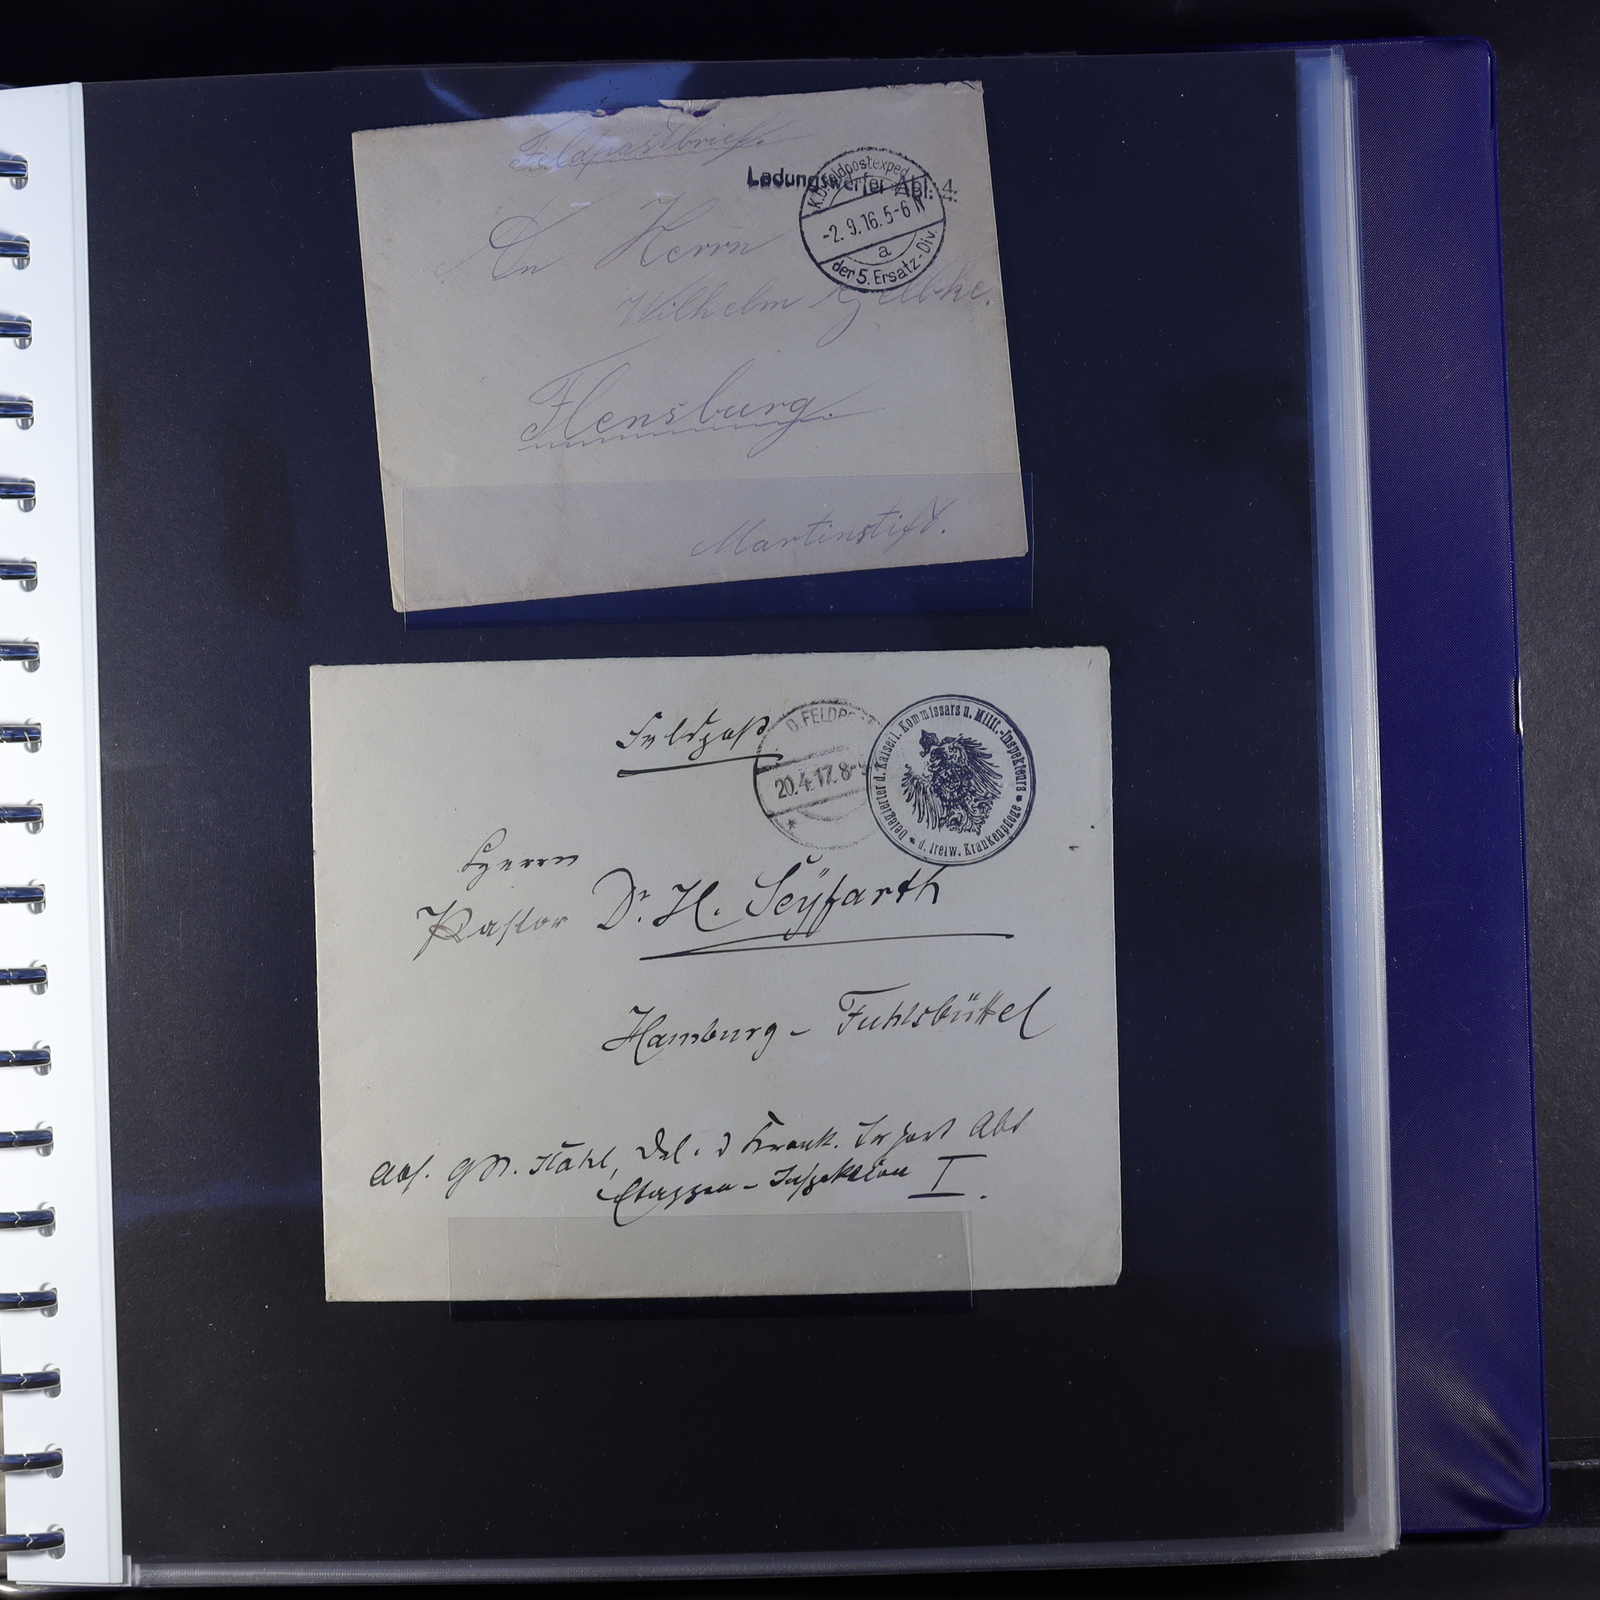 Feldpostbrief.
Ladungswerfer Abt: 4.
K.D. Feldpostexped.
-2.9.16.5-6 N
a
der 5. Ersatz-Div.
An Herrn
Wilhelm
Flensburg.
Martinstift.
Feldpost
D. FELDPO
20.4.17. 8-
Delegierter d. Kaiserl. Kommissars u. Milit.-Inspekteurs
d. freiw. Krankenpflege
Herrn
Pastor Dr. H. Seyfarth
Hamburg - Fuhlsbüttel
Abs. Stahl, Del. d Krank. Abt
Etappen - Inspektion I.